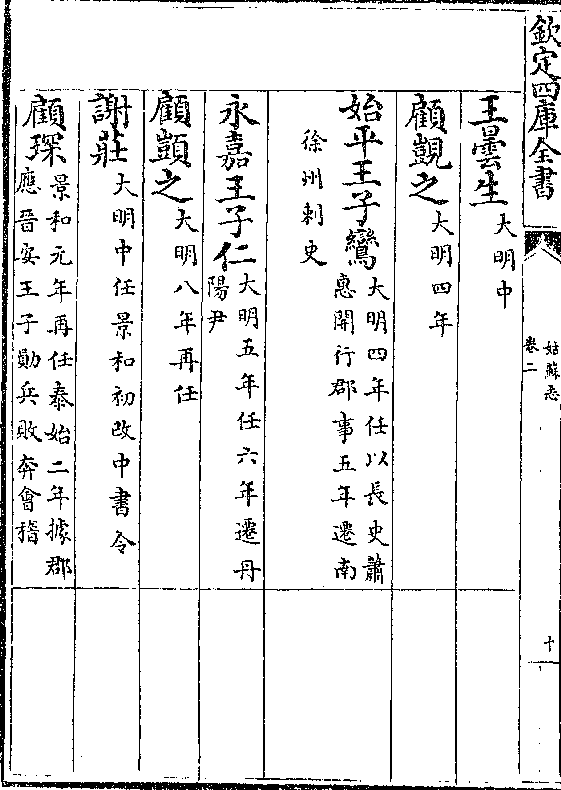 欽定四庫全書
姑蘇志
卷二
十
王曇生大明中
顧覬之大明四年
始平王子鸞大明四年任以長史蕭
惠開行郡事五年遷南
徐州刺史
永嘉王子仁大明五年任六年遷丹
陽尹
顧顗之大明八年再任
謝莊大明中任景和初改中書令
顧琛景和元年再任泰始二年據郡
應晉安王子勛兵敗奔會稽